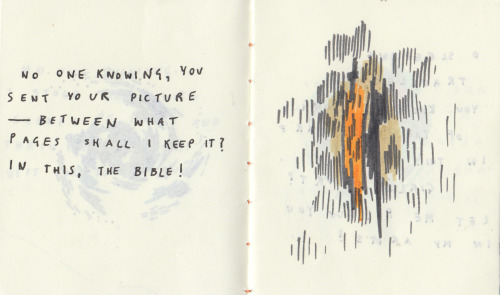 NO ONE KNOWING, YOU
SENT YOUR PICTURE
— BETWEEN WHAT
PAGES SHALL I KEEP IT?
IN THIS, THE BIBLE!